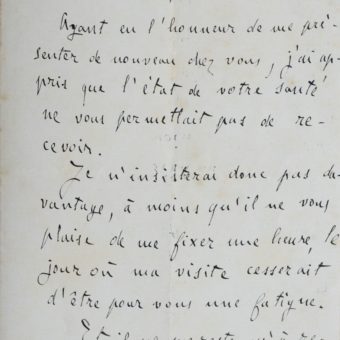 Ayant eu l'honneur de me pré-
senter de nouveau chez vous, j'ai ap-
pris que l'état de votre santé
ne vous permettait pas de re-
cevoir.
Je n'insisterai donc pas da-
vantage, à moins qu'il ne vous
plaise de me fixer une heure, le
jour où ma visite cesserait
d'être pour vous une fatigue.
Et il ne